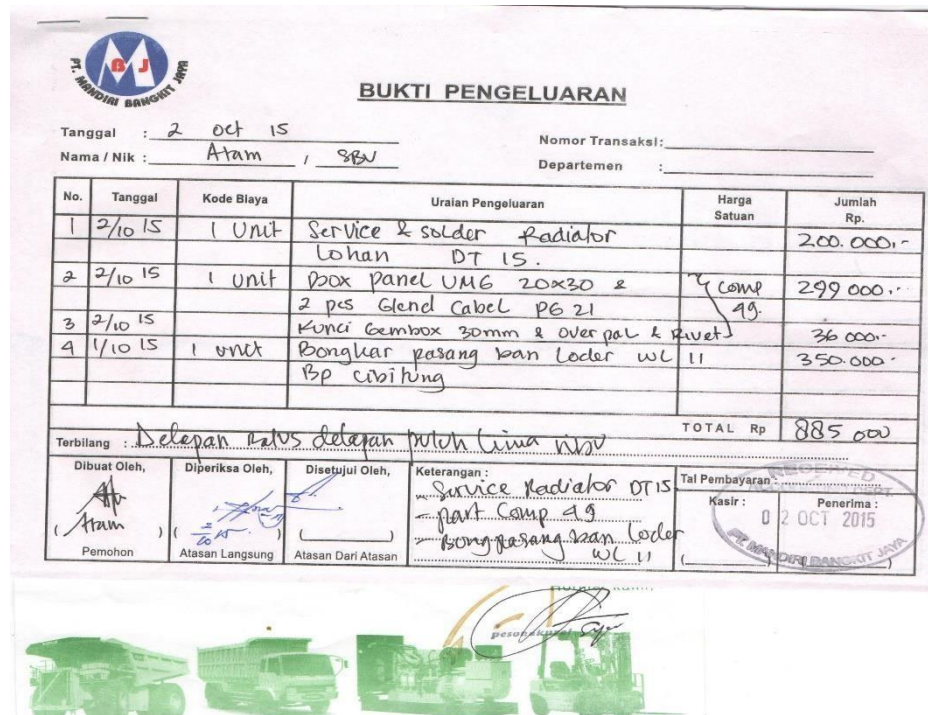 M
B J
PT. MANDIRI BANGKIT JAYA
BUKTI PENGELUARAN
Tanggal : 2 oct 15
Nomor Transaksi:
Nama / Nik : Atam / SBU
Departemen :
No. Tanggal Kode Biaya Uraian Pengeluaran Harga Satuan Jumlah Rp.
1 2/10 15 1 Unit Service & solder Radiator 200.000,-
Lohan DT 15.
2 2/10 15 1 unit Box panel UMG 20x30 & comp 299 000.-
2 pcs Glend Cabel PG 21 49.
3 2/10 15 Kunci Gembox 30mm & over pal & Rivet 36 000.-
4 1/10 15 1 unit Bongkar pasang ban Loder WL 11 350.000-
BP cibitung
TOTAL Rp 885 000
Terbilang : Delapan Ratus delapan puluh lima ribu
Dibuat Oleh, Diperiksa Oleh, Disetujui Oleh, Keterangan : Tgl Pembayaran :
- Service Radiator DT15
- part Comp 49
- Bong pasang ban Loder
WL 11
Kasir : Penerima :
( Atam )
Pemohon Atasan Langsung Atasan Dari Atasan
RECEIVED
02 OCT 2015
PT. MANDIRI BANGKIT JAYA